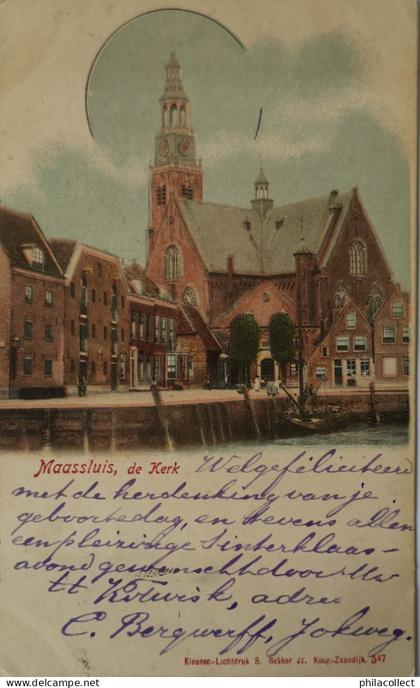 Maassluis, de Kerk
Welgefeliciteerd
met de herdenking van je
geboortedag, en tevens allen
een pleizirige Sinterklaas-
avond gewenscht door Uw
tt Kouwisk, adres
C. Bergwerff, Jokweg.
Kleuren-Lichtdruk S. Bakker Jz. Koog-Zaandijk. 347
philacollect
www.delcampe.net